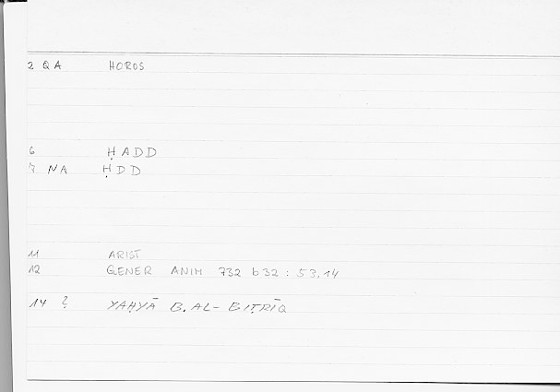 2 QA HOROS
6 ḤADD
7 NA ḤDD
11 ARIST
12 GENER ANIM 732 b32 : 53,14
14 ? YAḤYĀ B. AL-BIṬRĪQ